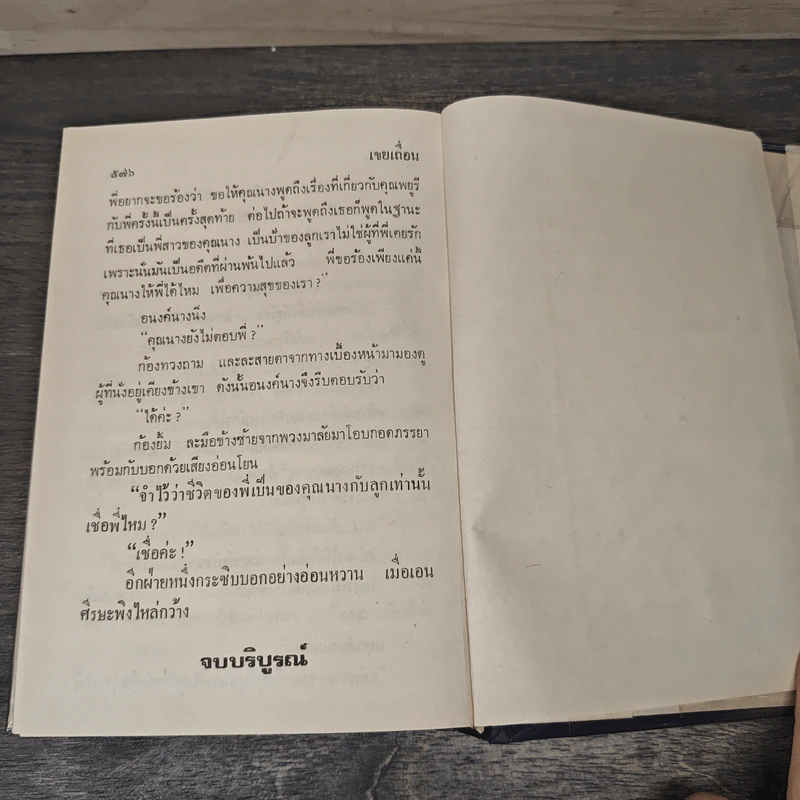 ๕๗๖
เขยเถื่อน
พี่อยากจะขอร้องว่า ขอให้คุณนางพูดถึงเรื่องที่เกี่ยวกับคุณพยูรี
กับพี่ครั้งนี้เป็นครั้งสุดท้าย ต่อไปถ้าจะพูดถึงเธอก็พูดในฐานะ
ที่เธอเป็นพี่สาวของคุณนาง เป็นป้าของลูกเราไม่ใช่ผู้ที่พี่เคยรัก
เพราะนั่นมันเป็นอดีตที่ผ่านพ้นไปแล้ว พี่ขอร้องเพียงแค่นี้
คุณนางให้พี่ได้ไหม เพื่อความสุขของเรา ?”
อนงค์นางนิ่ง
“คุณนางยังไม่ตอบพี่ ?”
ก้องทวงถาม และละสายตาจากทางเบื้องหน้ามามองดู
ผู้ที่นั่งอยู่เคียงข้างเขา ดังนั้นอนงค์นางจึงรีบตอบรับว่า
“ได้ค่ะ ?”
ก้องยิ้ม ละมือข้างซ้ายจากพวงมาลัยมาโอบกอดภรรยา
พร้อมกับบอกด้วยเสียงอ่อนโยน
“จำไว้ว่าชีวิตของพี่เป็นของคุณนางกับลูกเท่านั้น
เชื่อพี่ไหม ?”
“เชื่อค่ะ !”
อีกฝ่ายหนึ่งกระซิบบอกอย่างอ่อนหวาน เมื่อเอน
ศีรษะพิงไหล่กว้าง
จบบริบูรณ์